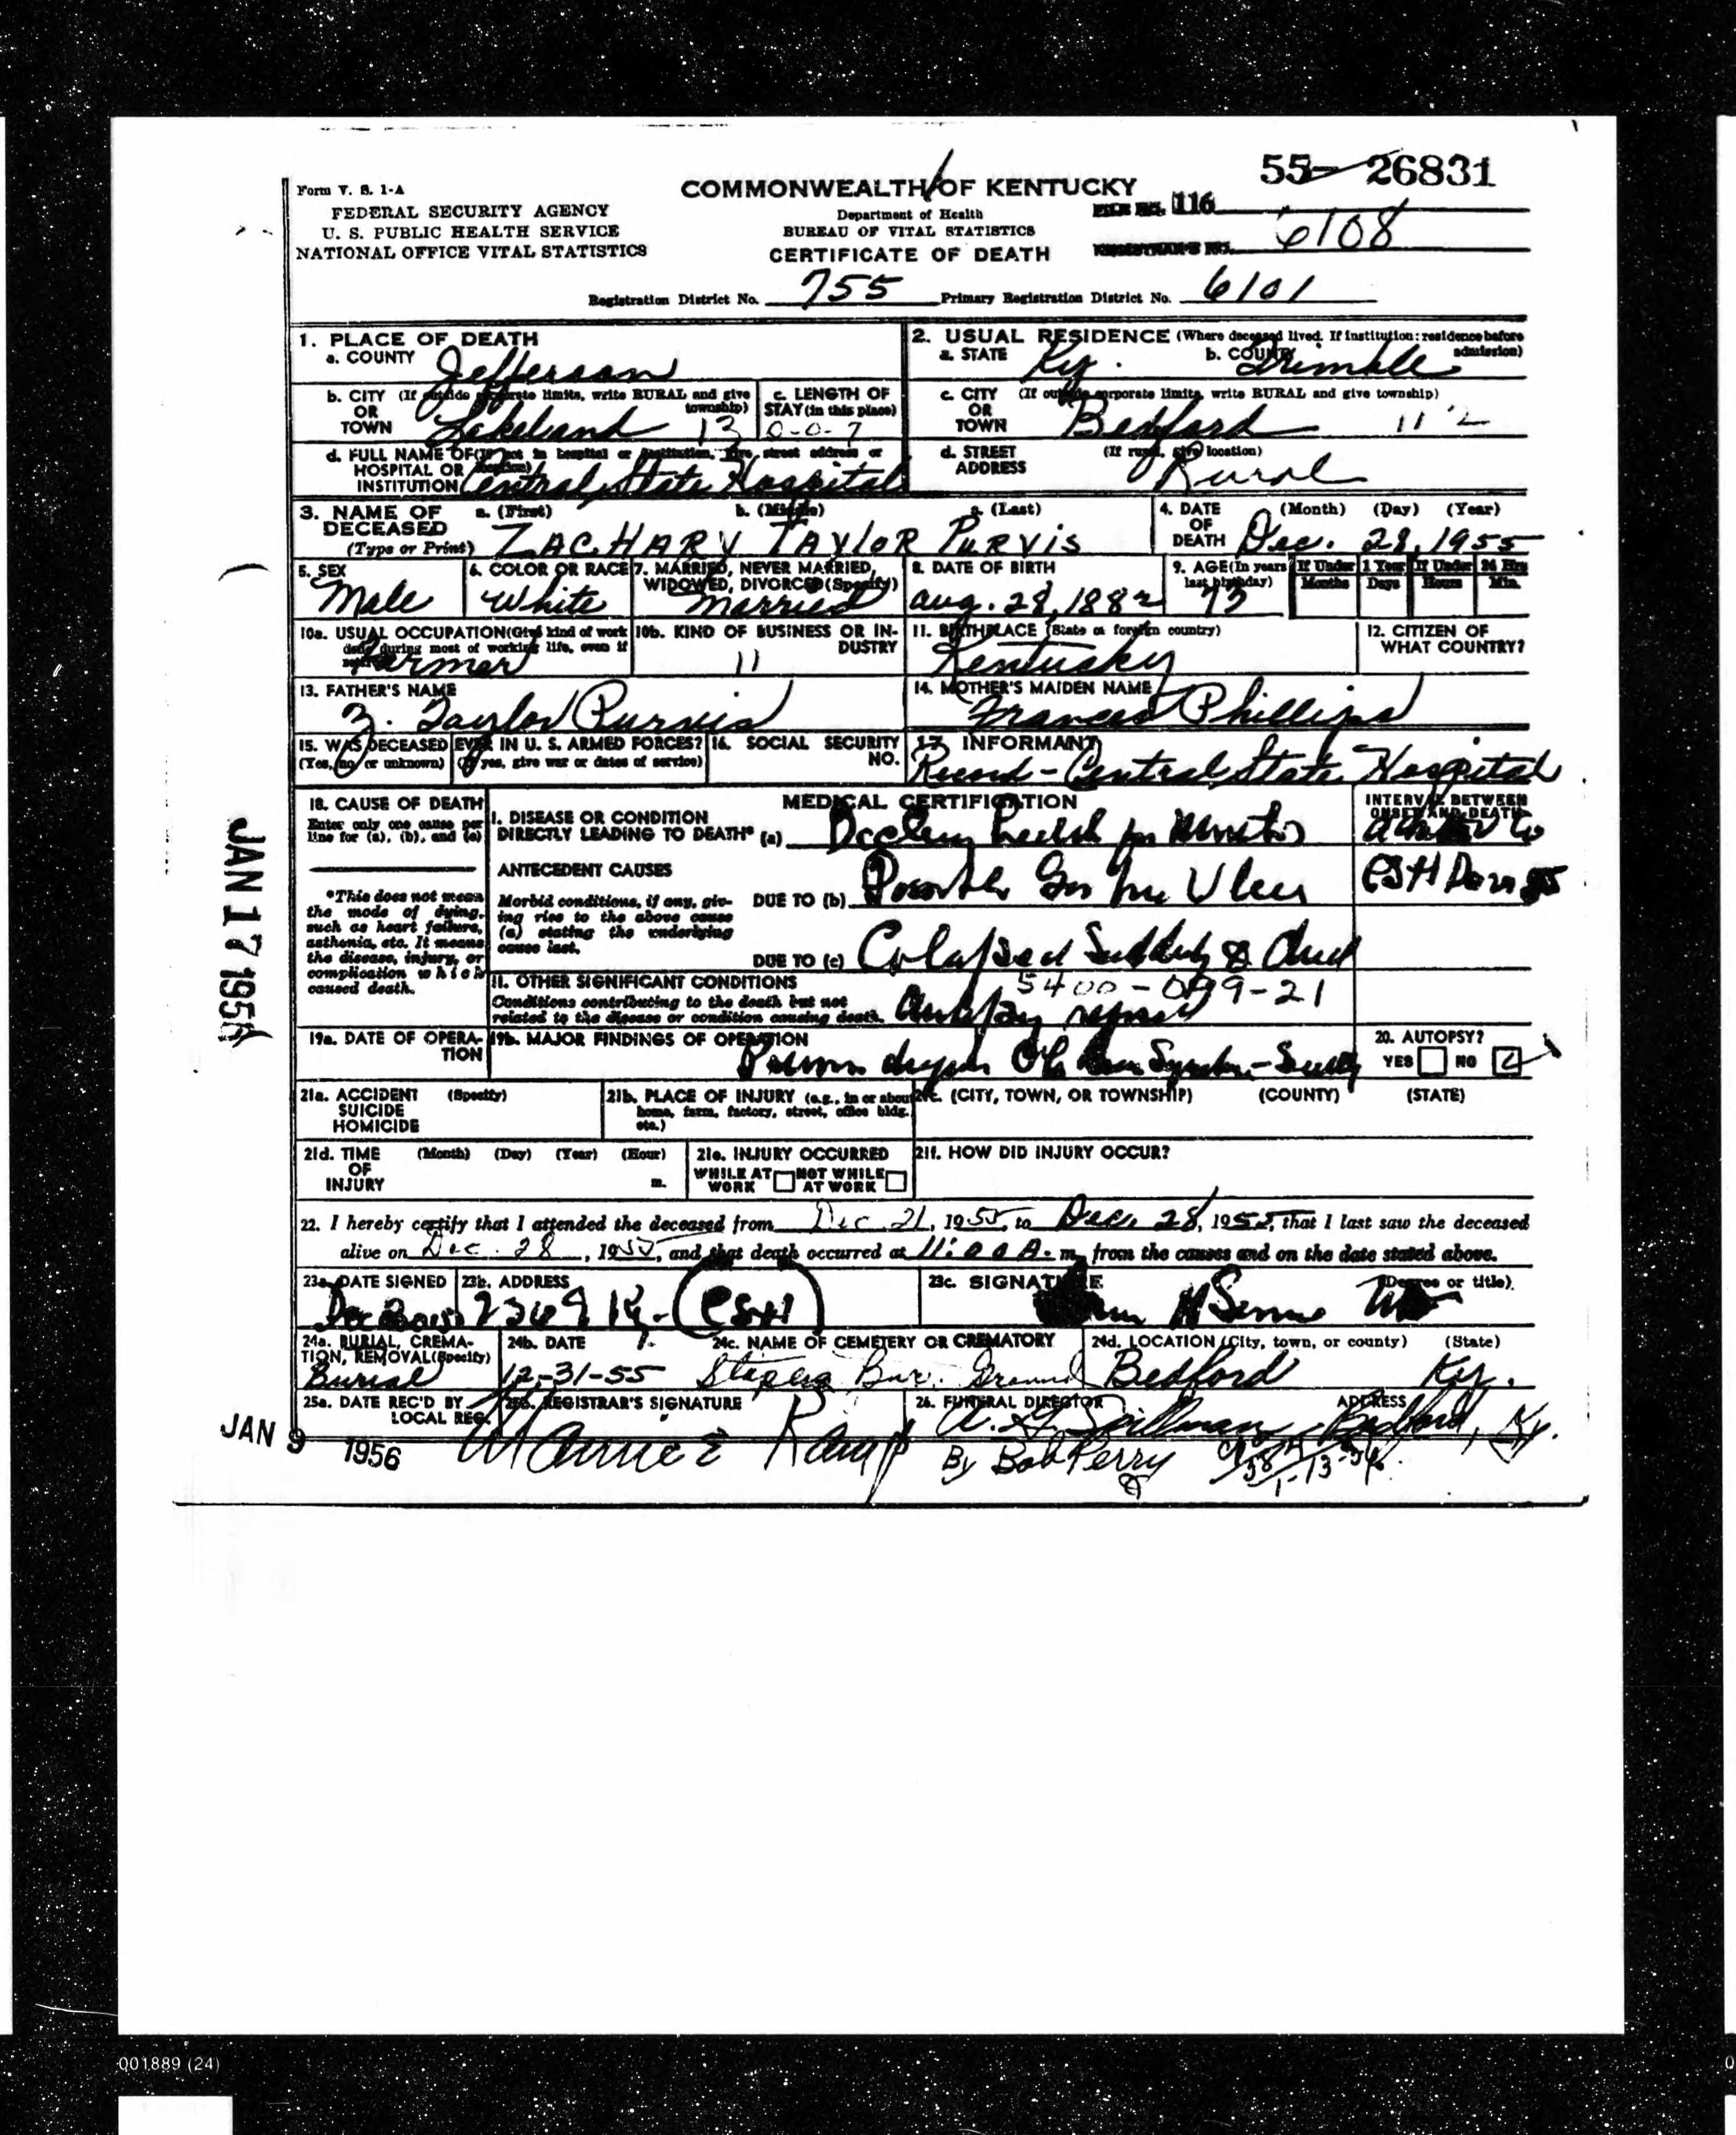 55-26831
Form V. S. 1-A
COMMONWEALTH OF KENTUCKY
FEDERAL SECURITY AGENCY
Department of Health
FILE NO. 116
U. S. PUBLIC HEALTH SERVICE
BUREAU OF VITAL STATISTICS
6108
NATIONAL OFFICE VITAL STATISTICS
CERTIFICATE OF DEATH
REGISTRAR'S NO.
Registration District No. 755 Primary Registration District No. 6101
1. PLACE OF DEATH
a. COUNTY Jefferson
2. USUAL RESIDENCE (Where deceased lived. If institution: residence before admission)
a. STATE Ky. b. COUNTY Trimble
b. CITY (If outside corporate limits, write RURAL and give township)
OR
TOWN Lakeland 13
c. LENGTH OF
STAY (in this place)
0-0-7
c. CITY (If outside corporate limits, write RURAL and give township)
OR
TOWN Bedford 11 2
d. FULL NAME OF (If not in hospital or institution, give street address or location)
HOSPITAL OR
INSTITUTION Central State Hospital
d. STREET (If rural, give location)
ADDRESS Rural
3. NAME OF a. (First) b. (Middle) c. (Last)
DECEASED
(Type or Print) ZACHARY TAYLOR PURVIS
4. DATE (Month) (Day) (Year)
OF
DEATH Dec. 28, 1955
5. SEX
Male
6. COLOR OR RACE
White
7. MARRIED, NEVER MARRIED,
WIDOWED, DIVORCED (Specify)
Married
8. DATE OF BIRTH
Aug. 28, 1882
9. AGE (In years last birthday)
73
If Under 1 Year If Under 24 Hrs
Months Days Hours Min.
10a. USUAL OCCUPATION (Give kind of work
done during most of working life, even if
retired)
Farmer
10b. KIND OF BUSINESS OR IN-
DUSTRY
11
11. BIRTHPLACE (State or foreign country)
Kentucky
12. CITIZEN OF
WHAT COUNTRY?
13. FATHER'S NAME
Z. Taylor Purvis
14. MOTHER'S MAIDEN NAME
Frances Phillips
15. WAS DECEASED EVER IN U. S. ARMED FORCES?
(Yes, no, or unknown) (If yes, give war or dates of service)
16. SOCIAL SECURITY
NO.
17. INFORMANT
Record - Central State Hospital
18. CAUSE OF DEATH
Enter only one cause per
line for (a), (b), and (c)
MEDICAL CERTIFICATION
INTERVAL BETWEEN
ONSET AND DEATH
I. DISEASE OR CONDITION
DIRECTLY LEADING TO DEATH* (a)
ANTECEDENT CAUSES
*This does not mean
the mode of dying,
such as heart failure,
asthenia, etc. It means
the disease, injury, or
complication which
caused death.
Morbid conditions, if any, giv-
ing rise to the above cause
(a) stating the underlying
cause last.
DUE TO (b) Ulcer
CSH
DUE TO (c) Colapsed Suddenly & died
5400-099-21
II. OTHER SIGNIFICANT CONDITIONS
Conditions contributing to the death but not
related to the disease or condition causing death.
Autopsy
19a. DATE OF OPERA-
TION
19b. MAJOR FINDINGS OF OPERATION
20. AUTOPSY?
YES NO
21a. ACCIDENT (Specify)
SUICIDE
HOMICIDE
21b. PLACE OF INJURY (e.g., in or about
home, farm, factory, street, office bldg.
etc.)
21c. (CITY, TOWN, OR TOWNSHIP) (COUNTY) (STATE)
21d. TIME (Month) (Day) (Year) (Hour)
OF
INJURY m.
21e. INJURY OCCURRED
WHILE AT WORK NOT WHILE AT WORK
21f. HOW DID INJURY OCCUR?
22. I hereby certify that I attended the deceased from Dec. 21, 1955, to Dec. 28, 1955, that I last saw the deceased
alive on Dec. 28, 1955, and that death occurred at 11:00 A. m., from the causes and on the date stated above.
23a. DATE SIGNED
23b. ADDRESS
(CSH)
23c. SIGNATURE (Degree or title)
24a. BURIAL, CREMA-
TION, REMOVAL (Specify)
Burial
24b. DATE
12-31-55
24c. NAME OF CEMETERY OR CREMATORY
Bur. Ground
24d. LOCATION (City, town, or county) (State)
Bedford Ky.
25a. DATE REC'D BY
LOCAL REG.
JAN 9 1956
25b. REGISTRAR'S SIGNATURE
26. FUNERAL DIRECTOR ADDRESS
Bedford, Ky.
By Bob Perry
1-13-56
JAN 17 1956
001889 (24)